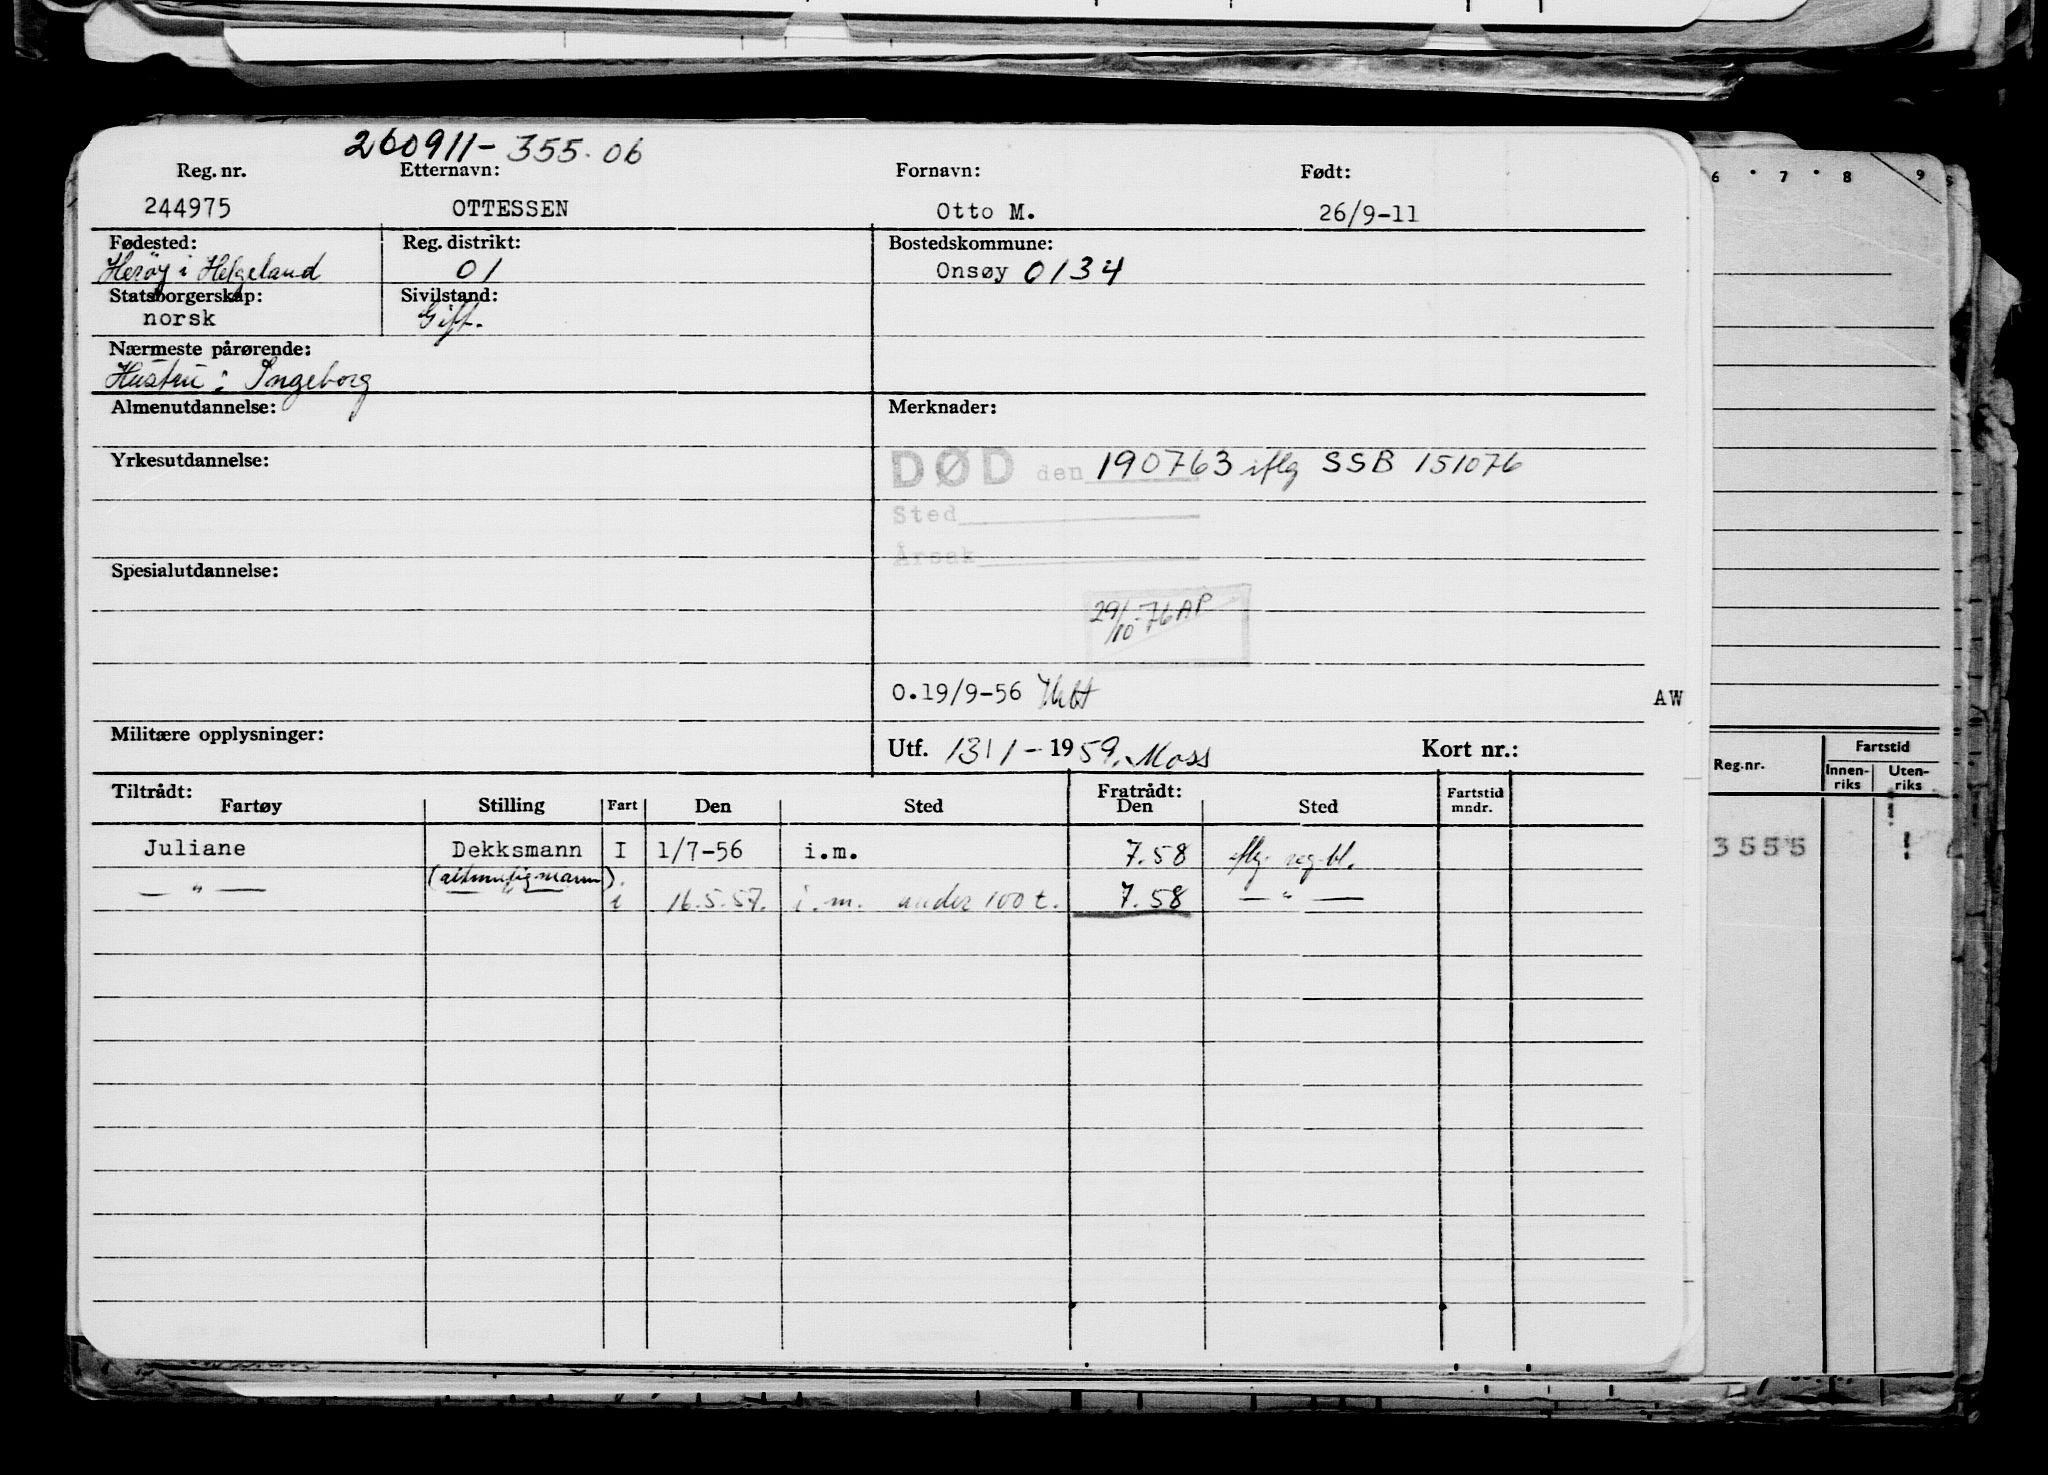 260911-355.06
Reg. nr. Etternavn: Fornavn: Født:
244975 OTTESSEN Otto M. 26/9-11
Fødested: Reg. distrikt: Bostedskommune:
Herøy i Helgeland 01 Onsøy 0134
Statsborgerskap: Sivilstand:
norsk Gift.
Nærmeste pårørende:
Hustru: Ingeborg
Almenutdannelse: Merknader:
Yrkesutdannelse: DØD den 190763 iflg SSB 151076
Sted
Årsak
Spesialutdannelse:
29/10-76 AP
O.19/9-56
AW
Militære opplysninger: Utf. 13/1-1959. Moss Kort nr.:
Tiltrådt: Fratrådt: Fartstid
Fartøy Stilling Fart Den Sted Den Sted mndr.
Juliane Dekksmann I 1/7-56 i.m. 7.58 iflg. reg.bl.
(altmuligmann)
— " — " i 16.5.57. i.m. under 100 t. 7.58 — " —
6 7 8 9
Reg.nr. Fartstid
Innen- Uten-
riks riks
3555